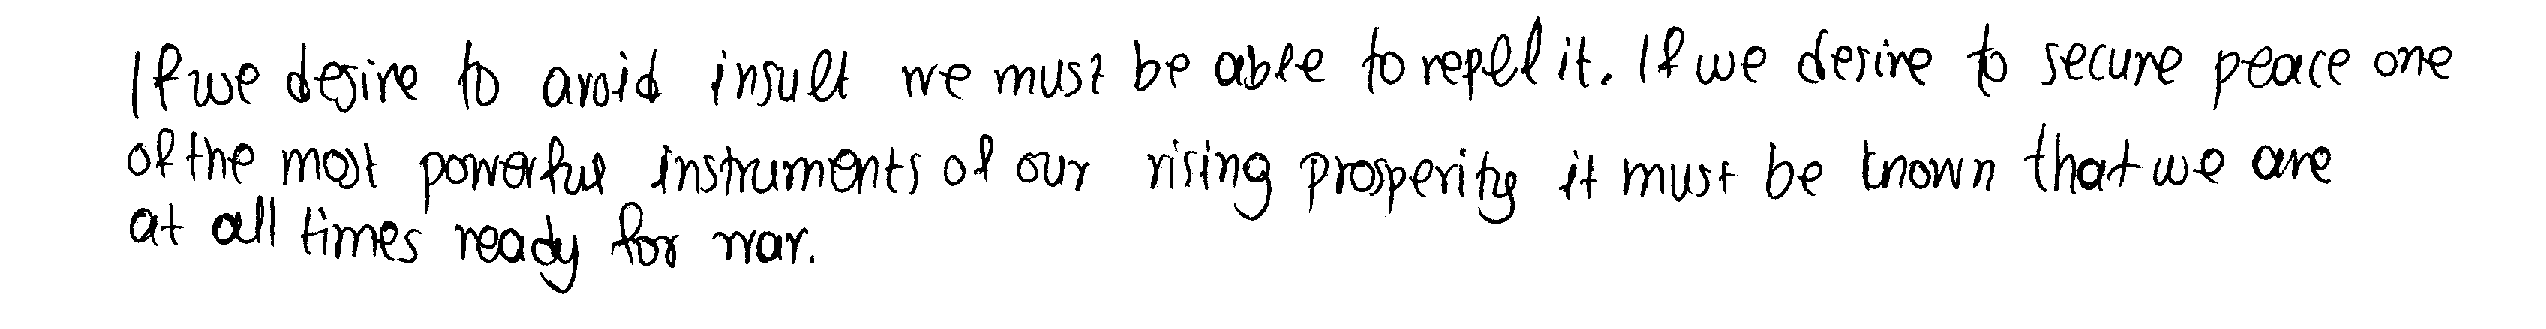 If we desire to avoid insult we must be able to repel it. If we desire to secure peace one
of the most powerful instruments of our rising prosperity it must be known that we are
at all times ready for war.